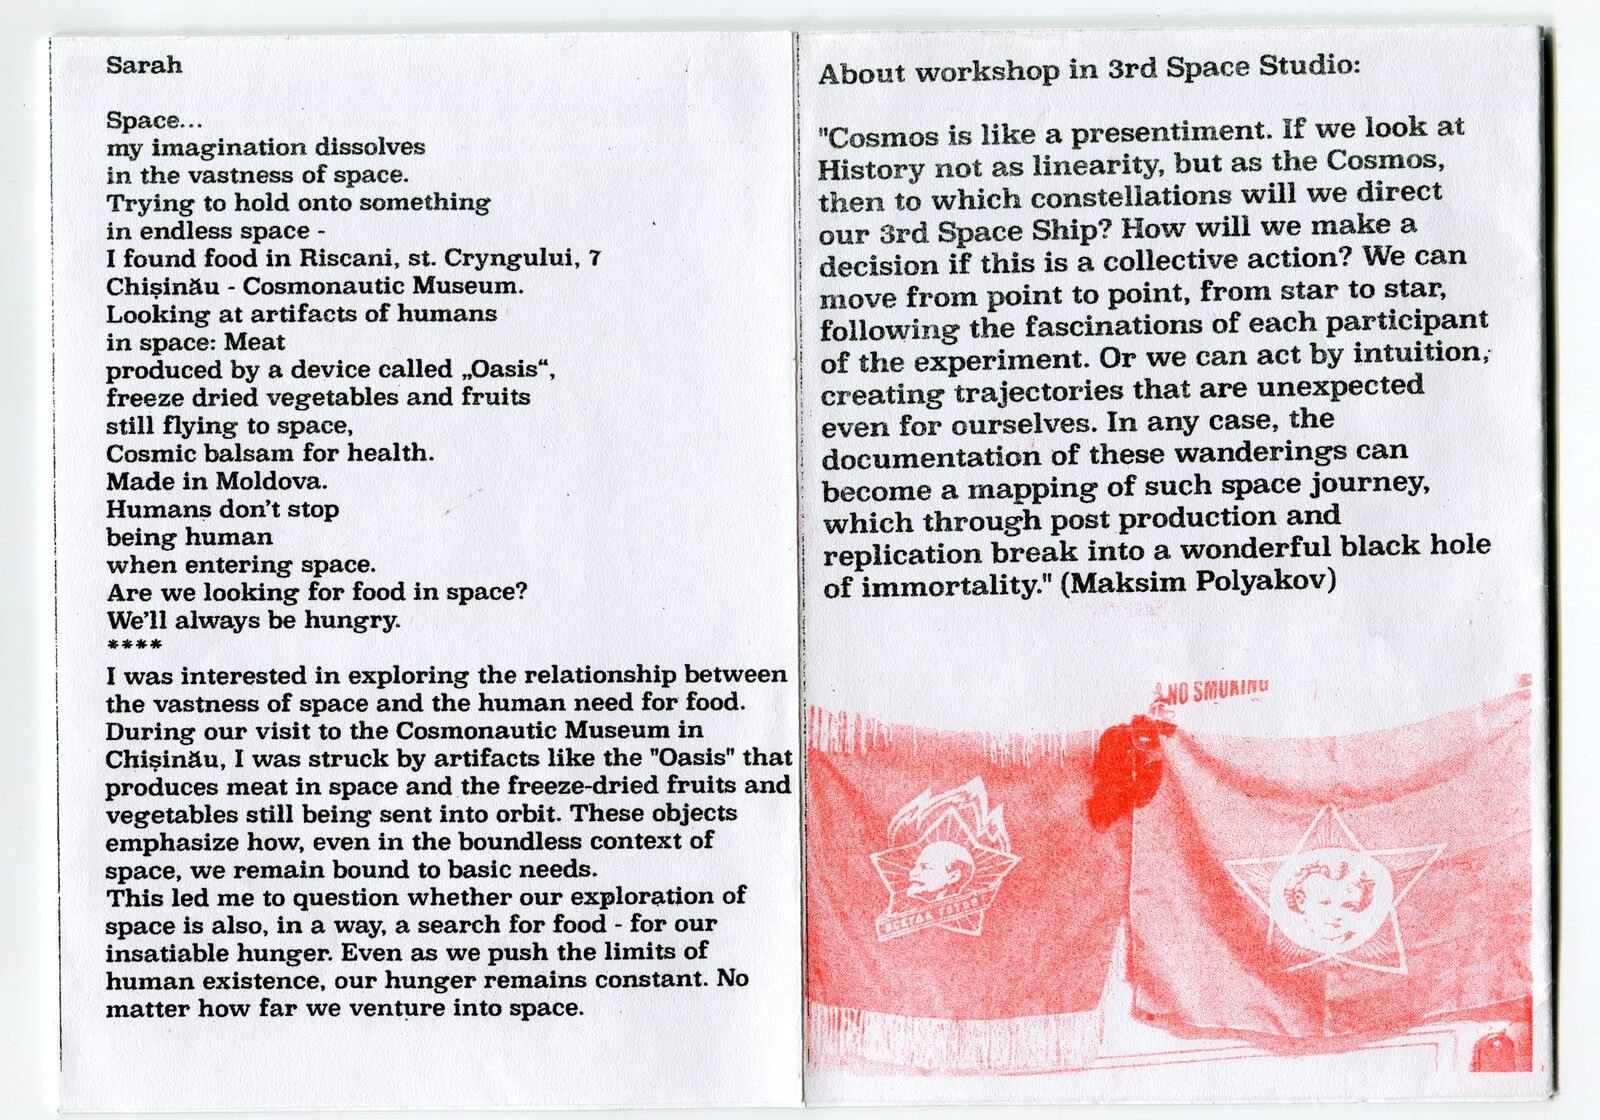 Sarah
Space...
my imagination dissolves
in the vastness of space.
Trying to hold onto something
in endless space -
I found food in Riscani, st. Cryngului, 7
Chișinău - Cosmonautic Museum.
Looking at artifacts of humans
in space: Meat
produced by a device called „Oasis“,
freeze dried vegetables and fruits
still flying to space,
Cosmic balsam for health.
Made in Moldova.
Humans don't stop
being human
when entering space.
Are we looking for food in space?
We'll always be hungry.
****
I was interested in exploring the relationship between
the vastness of space and the human need for food.
During our visit to the Cosmonautic Museum in
Chișinău, I was struck by artifacts like the "Oasis" that
produces meat in space and the freeze-dried fruits and
vegetables still being sent into orbit. These objects
emphasize how, even in the boundless context of
space, we remain bound to basic needs.
This led me to question whether our exploration of
space is also, in a way, a search for food - for our
insatiable hunger. Even as we push the limits of
human existence, our hunger remains constant. No
matter how far we venture into space.
About workshop in 3rd Space Studio:
"Cosmos is like a presentiment. If we look at
History not as linearity, but as the Cosmos,
then to which constellations will we direct
our 3rd Space Ship? How will we make a
decision if this is a collective action? We can
move from point to point, from star to star,
following the fascinations of each participant
of the experiment. Or we can act by intuition,
creating trajectories that are unexpected
even for ourselves. In any case, the
documentation of these wanderings can
become a mapping of such space journey,
which through post production and
replication break into a wonderful black hole
of immortality." (Maksim Polyakov)
NO SMOKING
ВСЕГДА ГОТОВ!